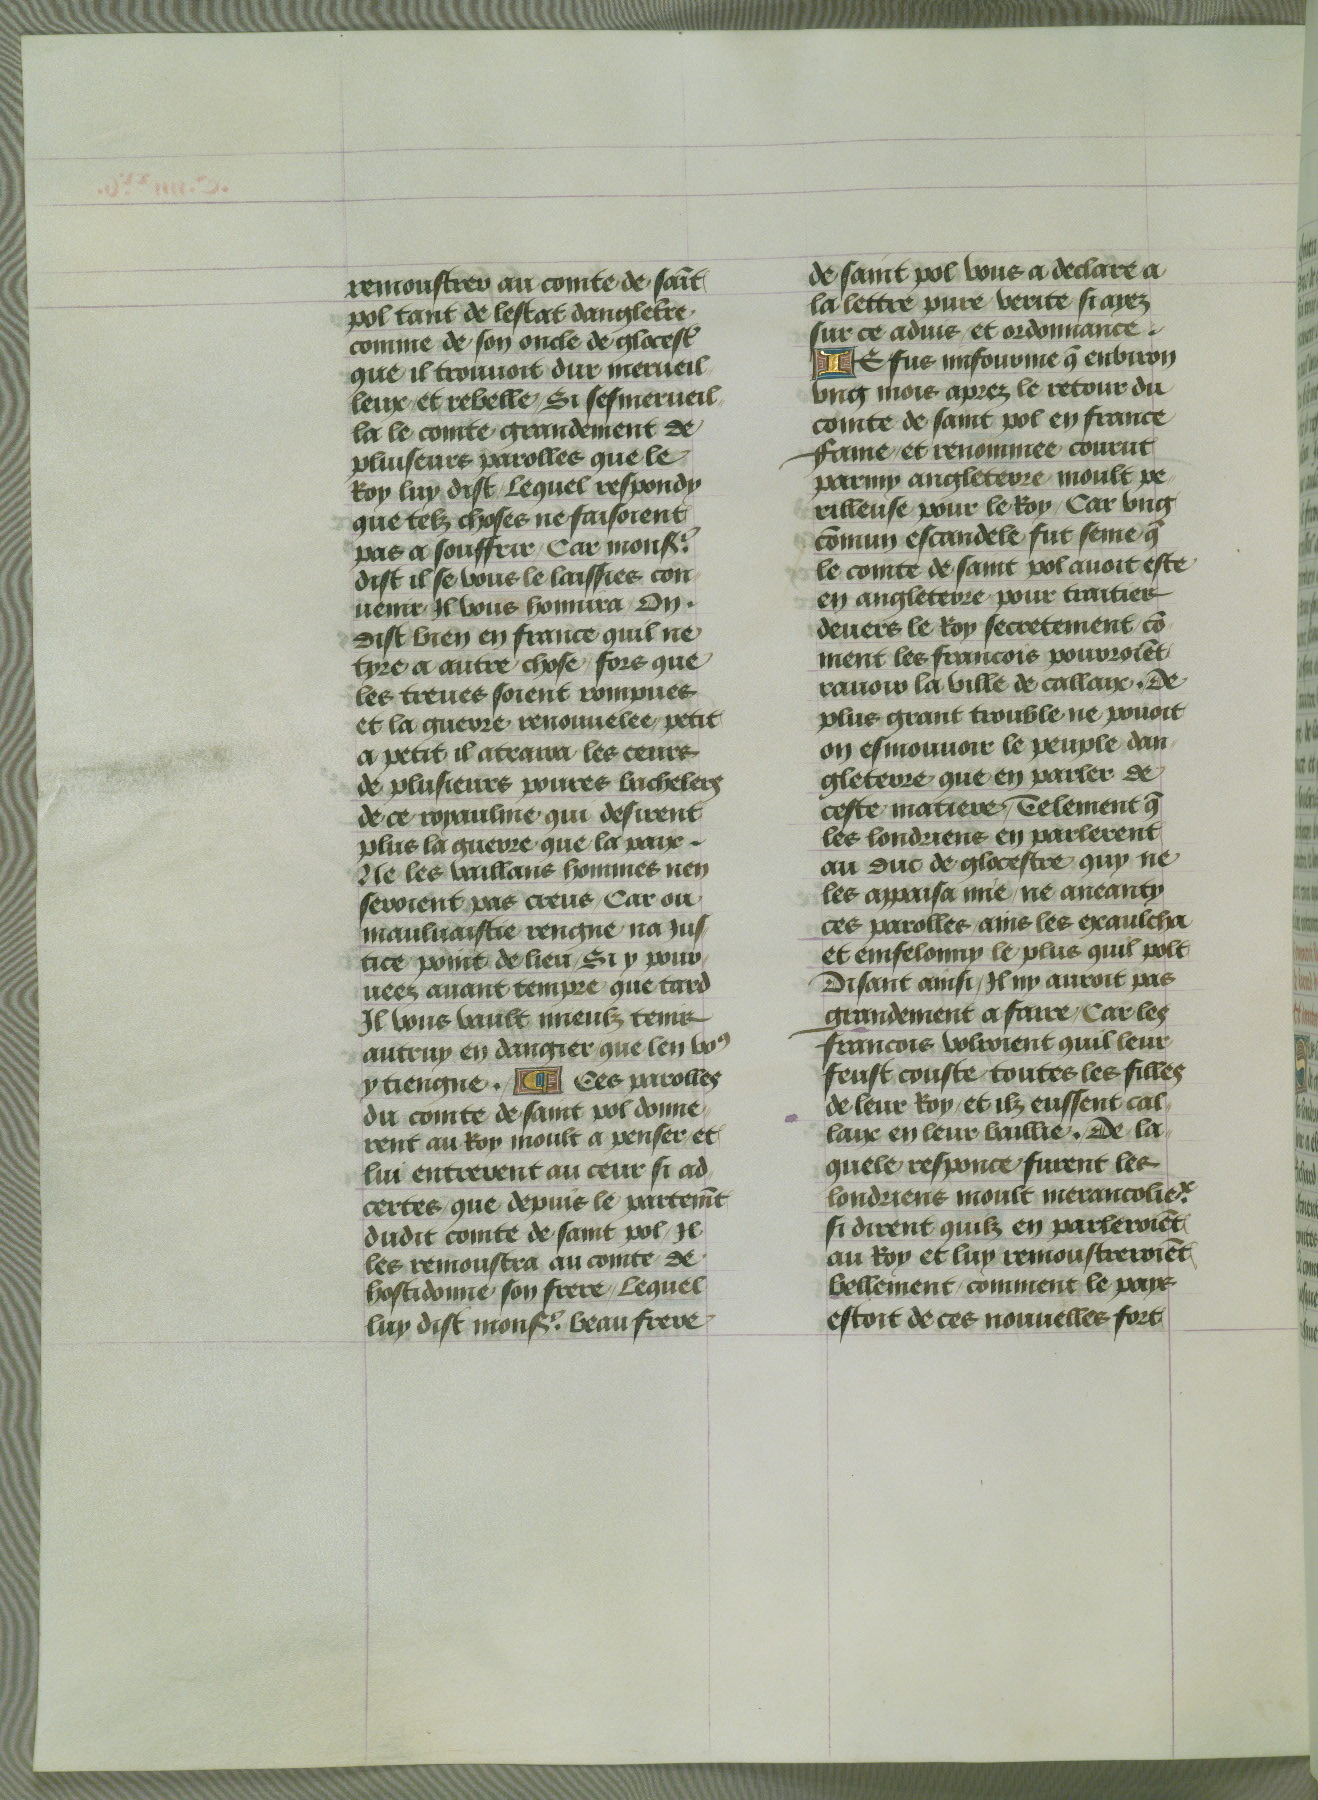 remonstrer au comte de sait̄
pol tant de lestat dangletre
comme de son oncle de glocestr̄
que il trouuoit dur merueil
leux et rebelle Si sesmerueil
la le comte grandement de
pluiseurs parolles que le
Roy luy dist / Lequel respondy
que telz choses ne faisoient
pas a souffrir / Car monsr̄.
dist il se vous le laissies con
uenir Il vous honnira On .
dist bien en france quil ne
tyre a autre chose / fors que
les treues soient rompues
et la guerre renouuelee / petit
a petit il atraira les ceurs
de plusieurs poures bachelers
de ce royaulme qui desirent
plus la guerre que la paix .
Ne les vaillans hommes nen
seroient pas creus Car ou
mauluaistie rengne na Jus
tice point de lieu / Si y pour
ueez auant tempre que tard
Il vous vault mieulz tenir
autruy en dangier que len vo9
y tiengne . C Ces parolles
du comte de saint pol donne
rent au Roy moult a penser et
lui entrerent au ceur si ad
certes / que depuis le partem̄t
dudit comte de saint pol / Il
les remonstra au comte de
hostidonne son frere / Lequel
luy dist monsr̄. beau frere
de saint pol vous a declare a
la lettre pure verite si ayez
sur ce aduis et ordonnance .
IE fus infourme q̄ enbiron
vng mois aprez le retour du
comte de saint pol en france
fame et renommee courut
parmy angleterre moult pe
rilleuse pour le Roy / Car vng
cōmun escandele fut seme q̄
le comte de saint pol auoit este
en angleterre pour traitier
deuers le Roy secretement cō
ment les francois pourroiēt
rauoir la ville de callaix . De
plus grant trouble ne pouoit
on esmouuoir le peuple dan
gleterre que en parler de
ceste matiere / Telement q̄
les londriens en parlerent
au duc de glocestre quy ne
les appaisa mie / ne aneanty
ces parolles ains les exaulcha
et enfelonny le plus quil polt
Disant ainsi / Il ny auroit pas
grandement a faire / Car les
francois volroient quil leur
feust couste toutes les filles
de leur Roy et ilz eussent cal
laix en leur baillie . De la
quele responce furent les
londriens moult merancoliex.
si dirent quilz en parleroiēt
au Roy et luy remonstreroiēt
bellement / comment le pays
estoit de ces nouuelles fort